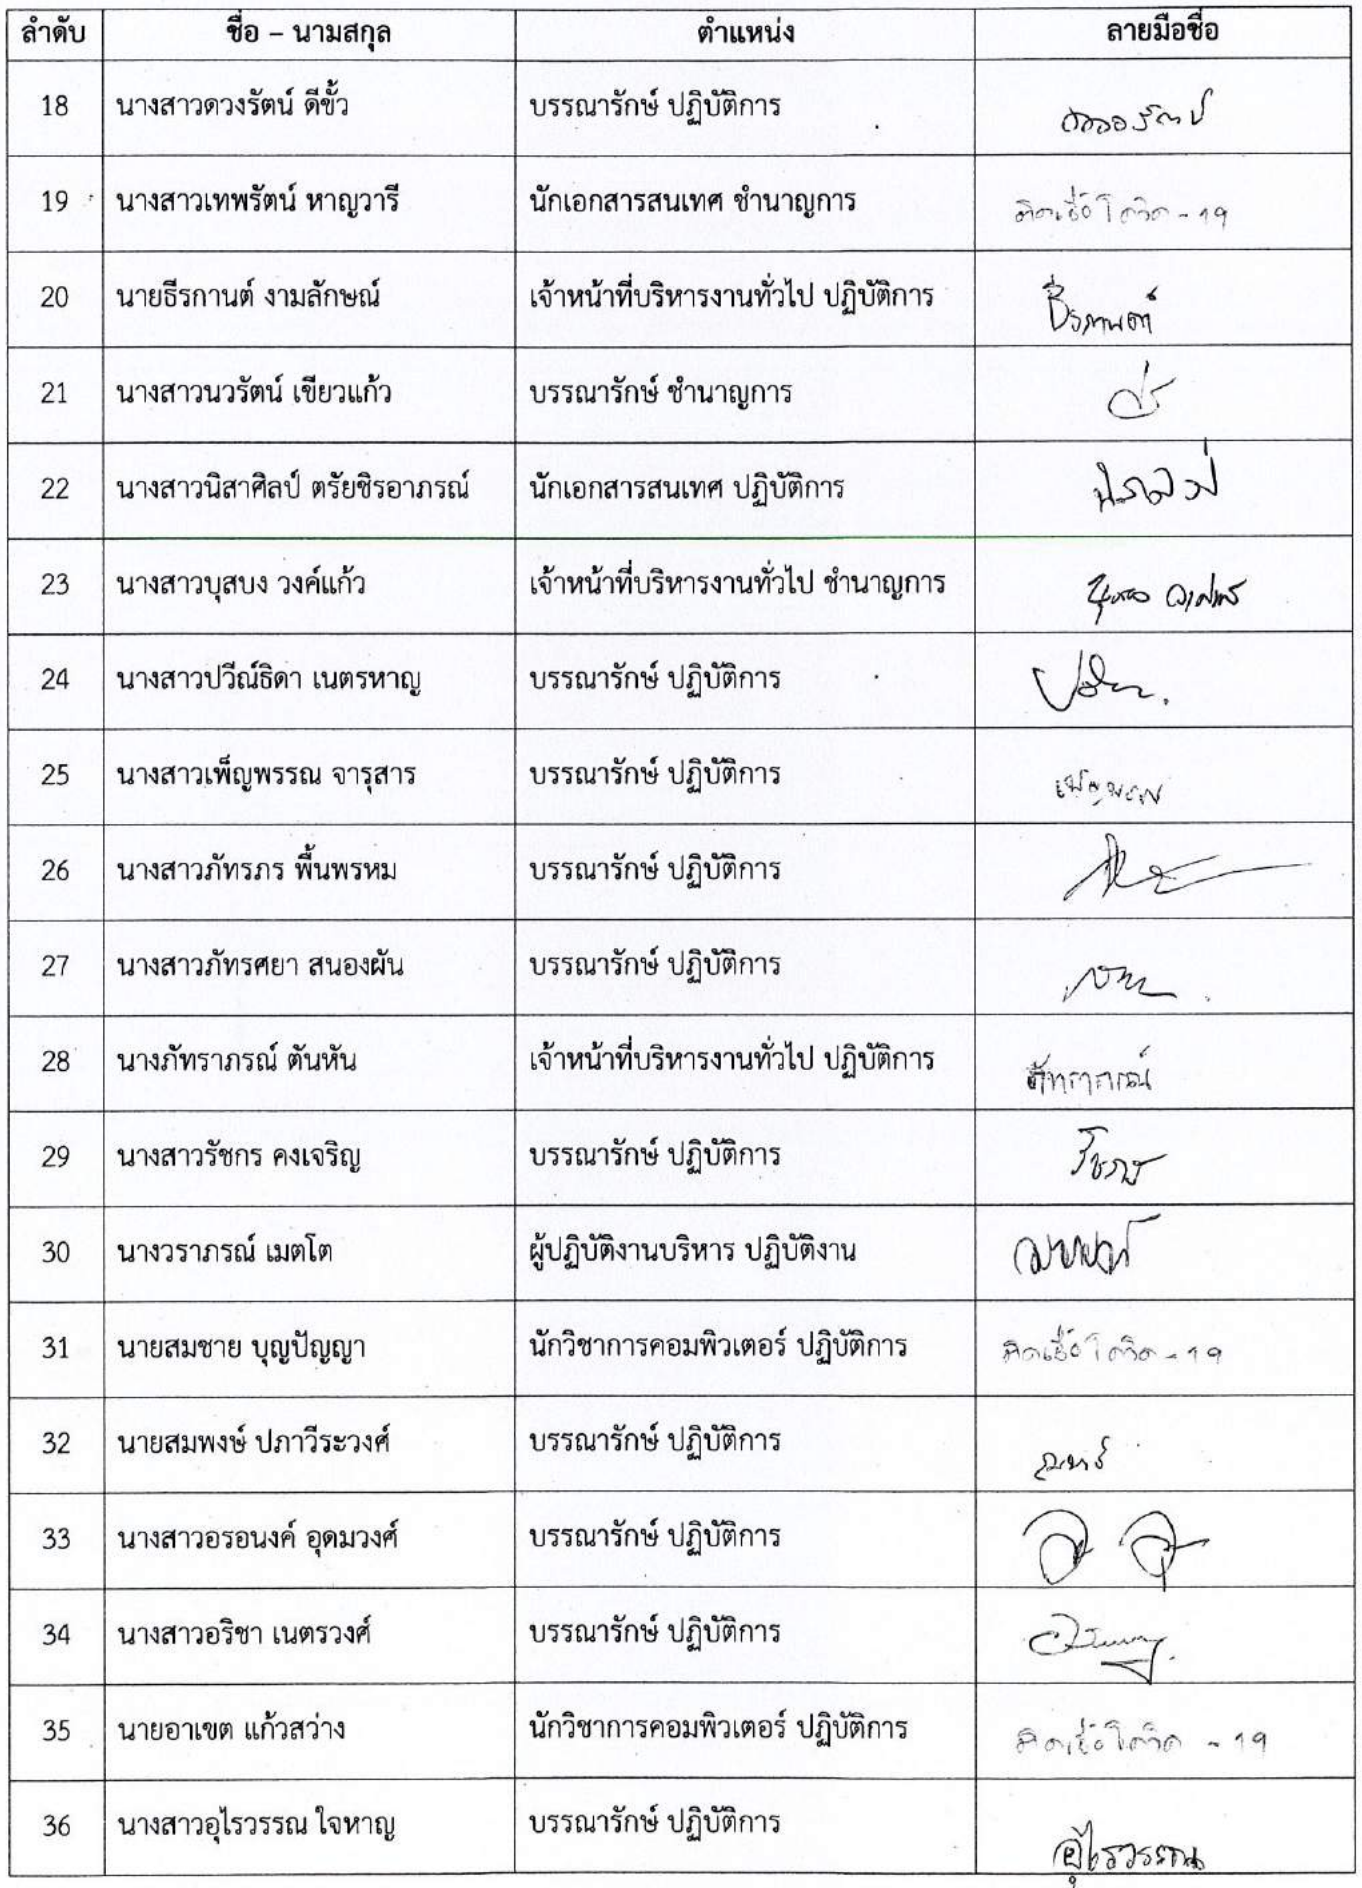 ลำดับ ชื่อ – นามสกุล ตำแหน่ง ลายมือชื่อ
18 นางสาวดวงรัตน์ ดีขั้ว บรรณารักษ์ ปฏิบัติการ
19 นางสาวเทพรัตน์ หาญวารี นักเอกสารสนเทศ ชำนาญการ ติดเชื้อโควิด - 19
20 นายธีรกานต์ งามลักษณ์ เจ้าหน้าที่บริหารงานทั่วไป ปฏิบัติการ ธีรกานต์
21 นางสาวนวรัตน์ เขียวแก้ว บรรณารักษ์ ชำนาญการ
22 นางสาวนิสาศิลป์ ตรัยชิรอาภรณ์ นักเอกสารสนเทศ ปฏิบัติการ
23 นางสาวบุสบง วงค์แก้ว เจ้าหน้าที่บริหารงานทั่วไป ชำนาญการ
24 นางสาวปวีณ์ธิดา เนตรหาญ บรรณารักษ์ ปฏิบัติการ
25 นางสาวเพ็ญพรรณ จารุสาร บรรณารักษ์ ปฏิบัติการ
26 นางสาวภัทรภร พื้นพรหม บรรณารักษ์ ปฏิบัติการ
27 นางสาวภัทรศยา สนองผัน บรรณารักษ์ ปฏิบัติการ
28 นางภัทราภรณ์ ตันหัน เจ้าหน้าที่บริหารงานทั่วไป ปฏิบัติการ ภัทราภรณ์
29 นางสาวรัชกร คงเจริญ บรรณารักษ์ ปฏิบัติการ รัชกร
30 นางวราภรณ์ เมตโต ผู้ปฏิบัติงานบริหาร ปฏิบัติงาน
31 นายสมชาย บุญปัญญา นักวิชาการคอมพิวเตอร์ ปฏิบัติการ ติดเชื้อโควิด - 19
32 นายสมพงษ์ ปภาวีระวงศ์ บรรณารักษ์ ปฏิบัติการ
33 นางสาวอรอนงค์ อุดมวงศ์ บรรณารักษ์ ปฏิบัติการ
34 นางสาวอริชา เนตรวงศ์ บรรณารักษ์ ปฏิบัติการ
35 นายอาเขต แก้วสว่าง นักวิชาการคอมพิวเตอร์ ปฏิบัติการ ติดเชื้อโควิด - 19
36 นางสาวอุไรวรรณ ใจหาญ บรรณารักษ์ ปฏิบัติการ อุไรวรรณ